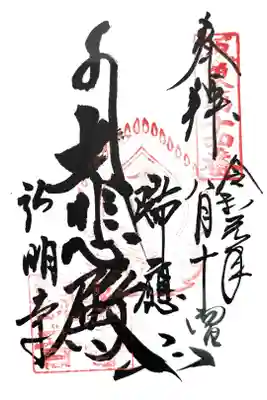 奉拝
令和元年
八月十四日
瑞應山
大悲殿
弘明寺